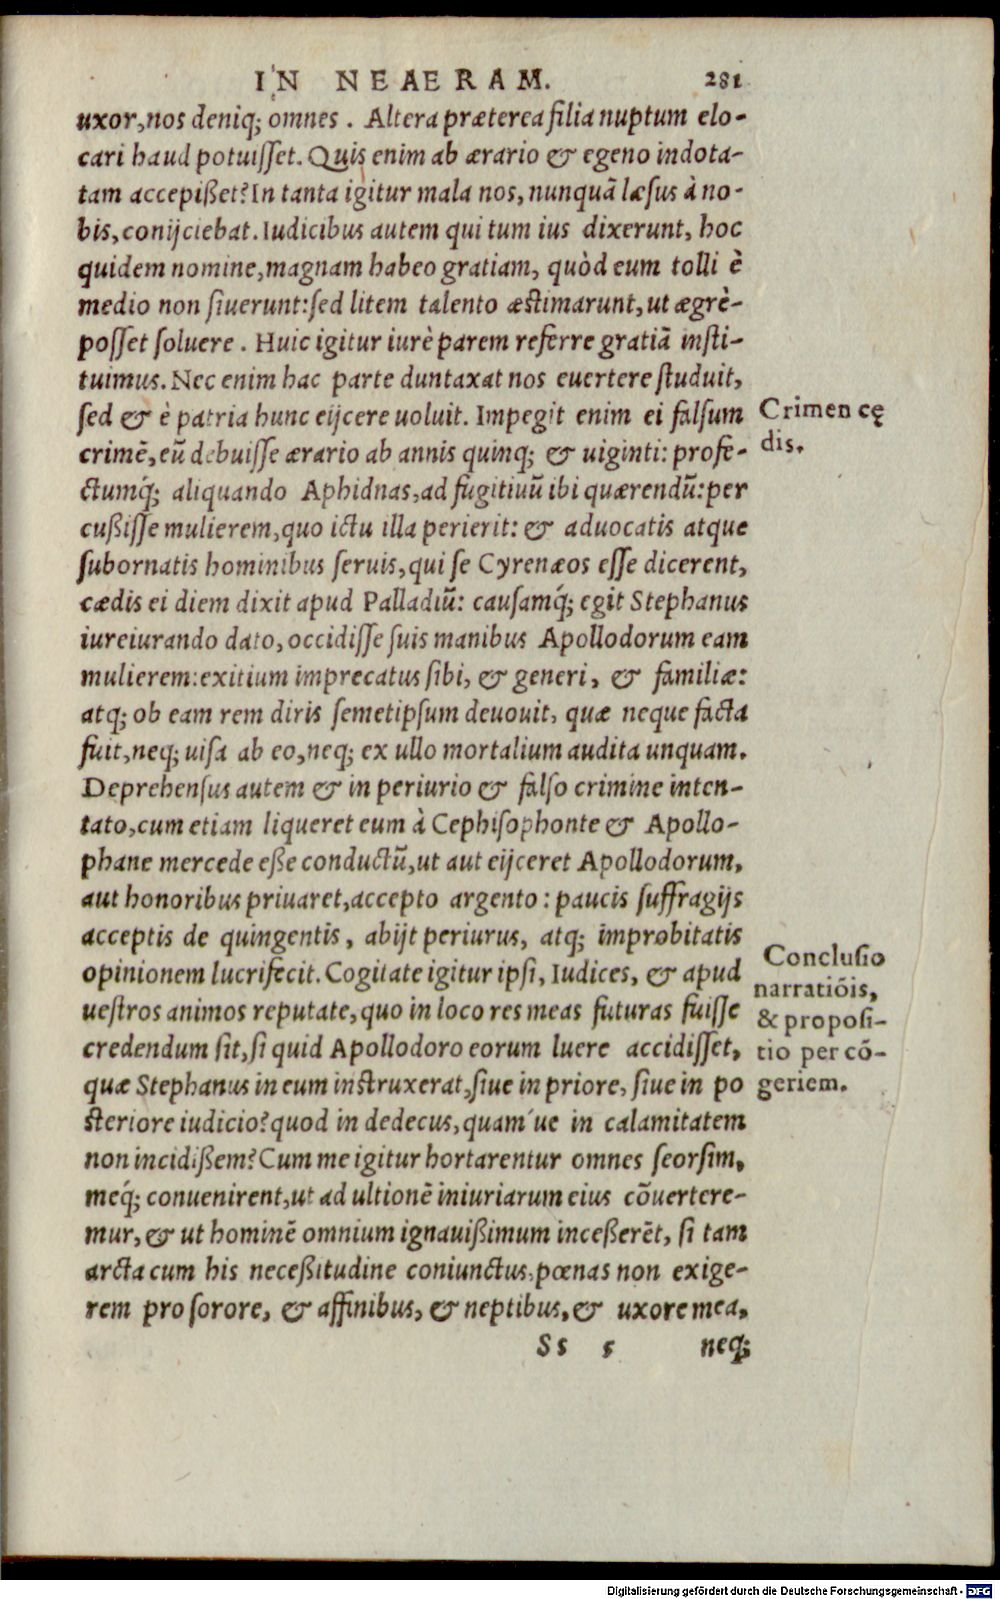 IN NEAERAM. 281
uxor, nos deniq; omnes. Altera præterea filia nuptum elo-
cari haud potuisset. Quis enim ab ærario & egeno indota-
tam accepißet? In tanta igitur mala nos, nunquā læsus à no-
bis, conijciebat. Iudicibus autem qui tum ius dixerunt, hoc
quidem nomine, magnam habeo gratiam, quòd eum tolli è
medio non siuerunt: sed litem talento æstimarunt, ut ægrè-
posset soluere. Huic igitur iurè parem referre gratiā insti-
tuimus. Nec enim hac parte duntaxat nos euertere studuit,
sed & è patria hunc eijcere uoluit. Impegit enim ei falsum
crimē, eū debuisse ærario ab annis quinq; & uiginti: profe-
ctumq́; aliquando Aphidnas, ad fugitiuū ibi quærendū: per
cußisse mulierem, quo ictu illa perierit: & aduocatis atque
subornatis hominibus seruis, qui se Cyrenæos esse dicerent,
cædis ei diem dixit apud Palladiū: causamq́; egit Stephanus
iureiurando dato, occidisse suis manibus Apollodorum eam
mulierem: exitium imprecatus sibi, & generi, & familiæ:
atq; ob eam rem diris semetipsum deuouit, quæ neque facta
fuit, neq; uisa ab eo, neq; ex ullo mortalium audita unquam.
Deprehensus autem & in periurio & falso crimine inten-
tato, cum etiam liqueret eum à Cephisophonte & Apollo-
phane mercede eße conductū, ut aut eijceret Apollodorum,
aut honoribus priuaret, accepto argento: paucis suffragijs
acceptis de quingentis, abijt periurus, atq; improbitatis
opinionem lucrifecit. Cogitate igitur ipsi, Iudices, & apud
uestros animos reputate, quo in loco res meas futuras fuisse
credendum sit, si quid Apollodoro eorum luere accidisset,
quæ Stephanus in eum instruxerat, siue in priore, siue in po
steriore iudicio? quod in dedecus, quam´ue in calamitatem
non incidißem? Cum me igitur hortarentur omnes seorsim,
meq́; conuenirent, ut ad ultionē iniuriarum eius cōuertere-
mur, & ut hominē omnium ignauißimum inceßerēt, si tam
arcta cum his neceßitudine coniunctus, pœnas non exige-
rem pro sorore, & affinibus, & neptibus, & uxore mea,
Ss 5 neq;
Crimen cę
dis.
Conclusio
narratiōis,
& proposi-
tio per cō-
geriem.
Digitalisierung gefördert durch die Deutsche Forschungsgemeinschaft - DFG